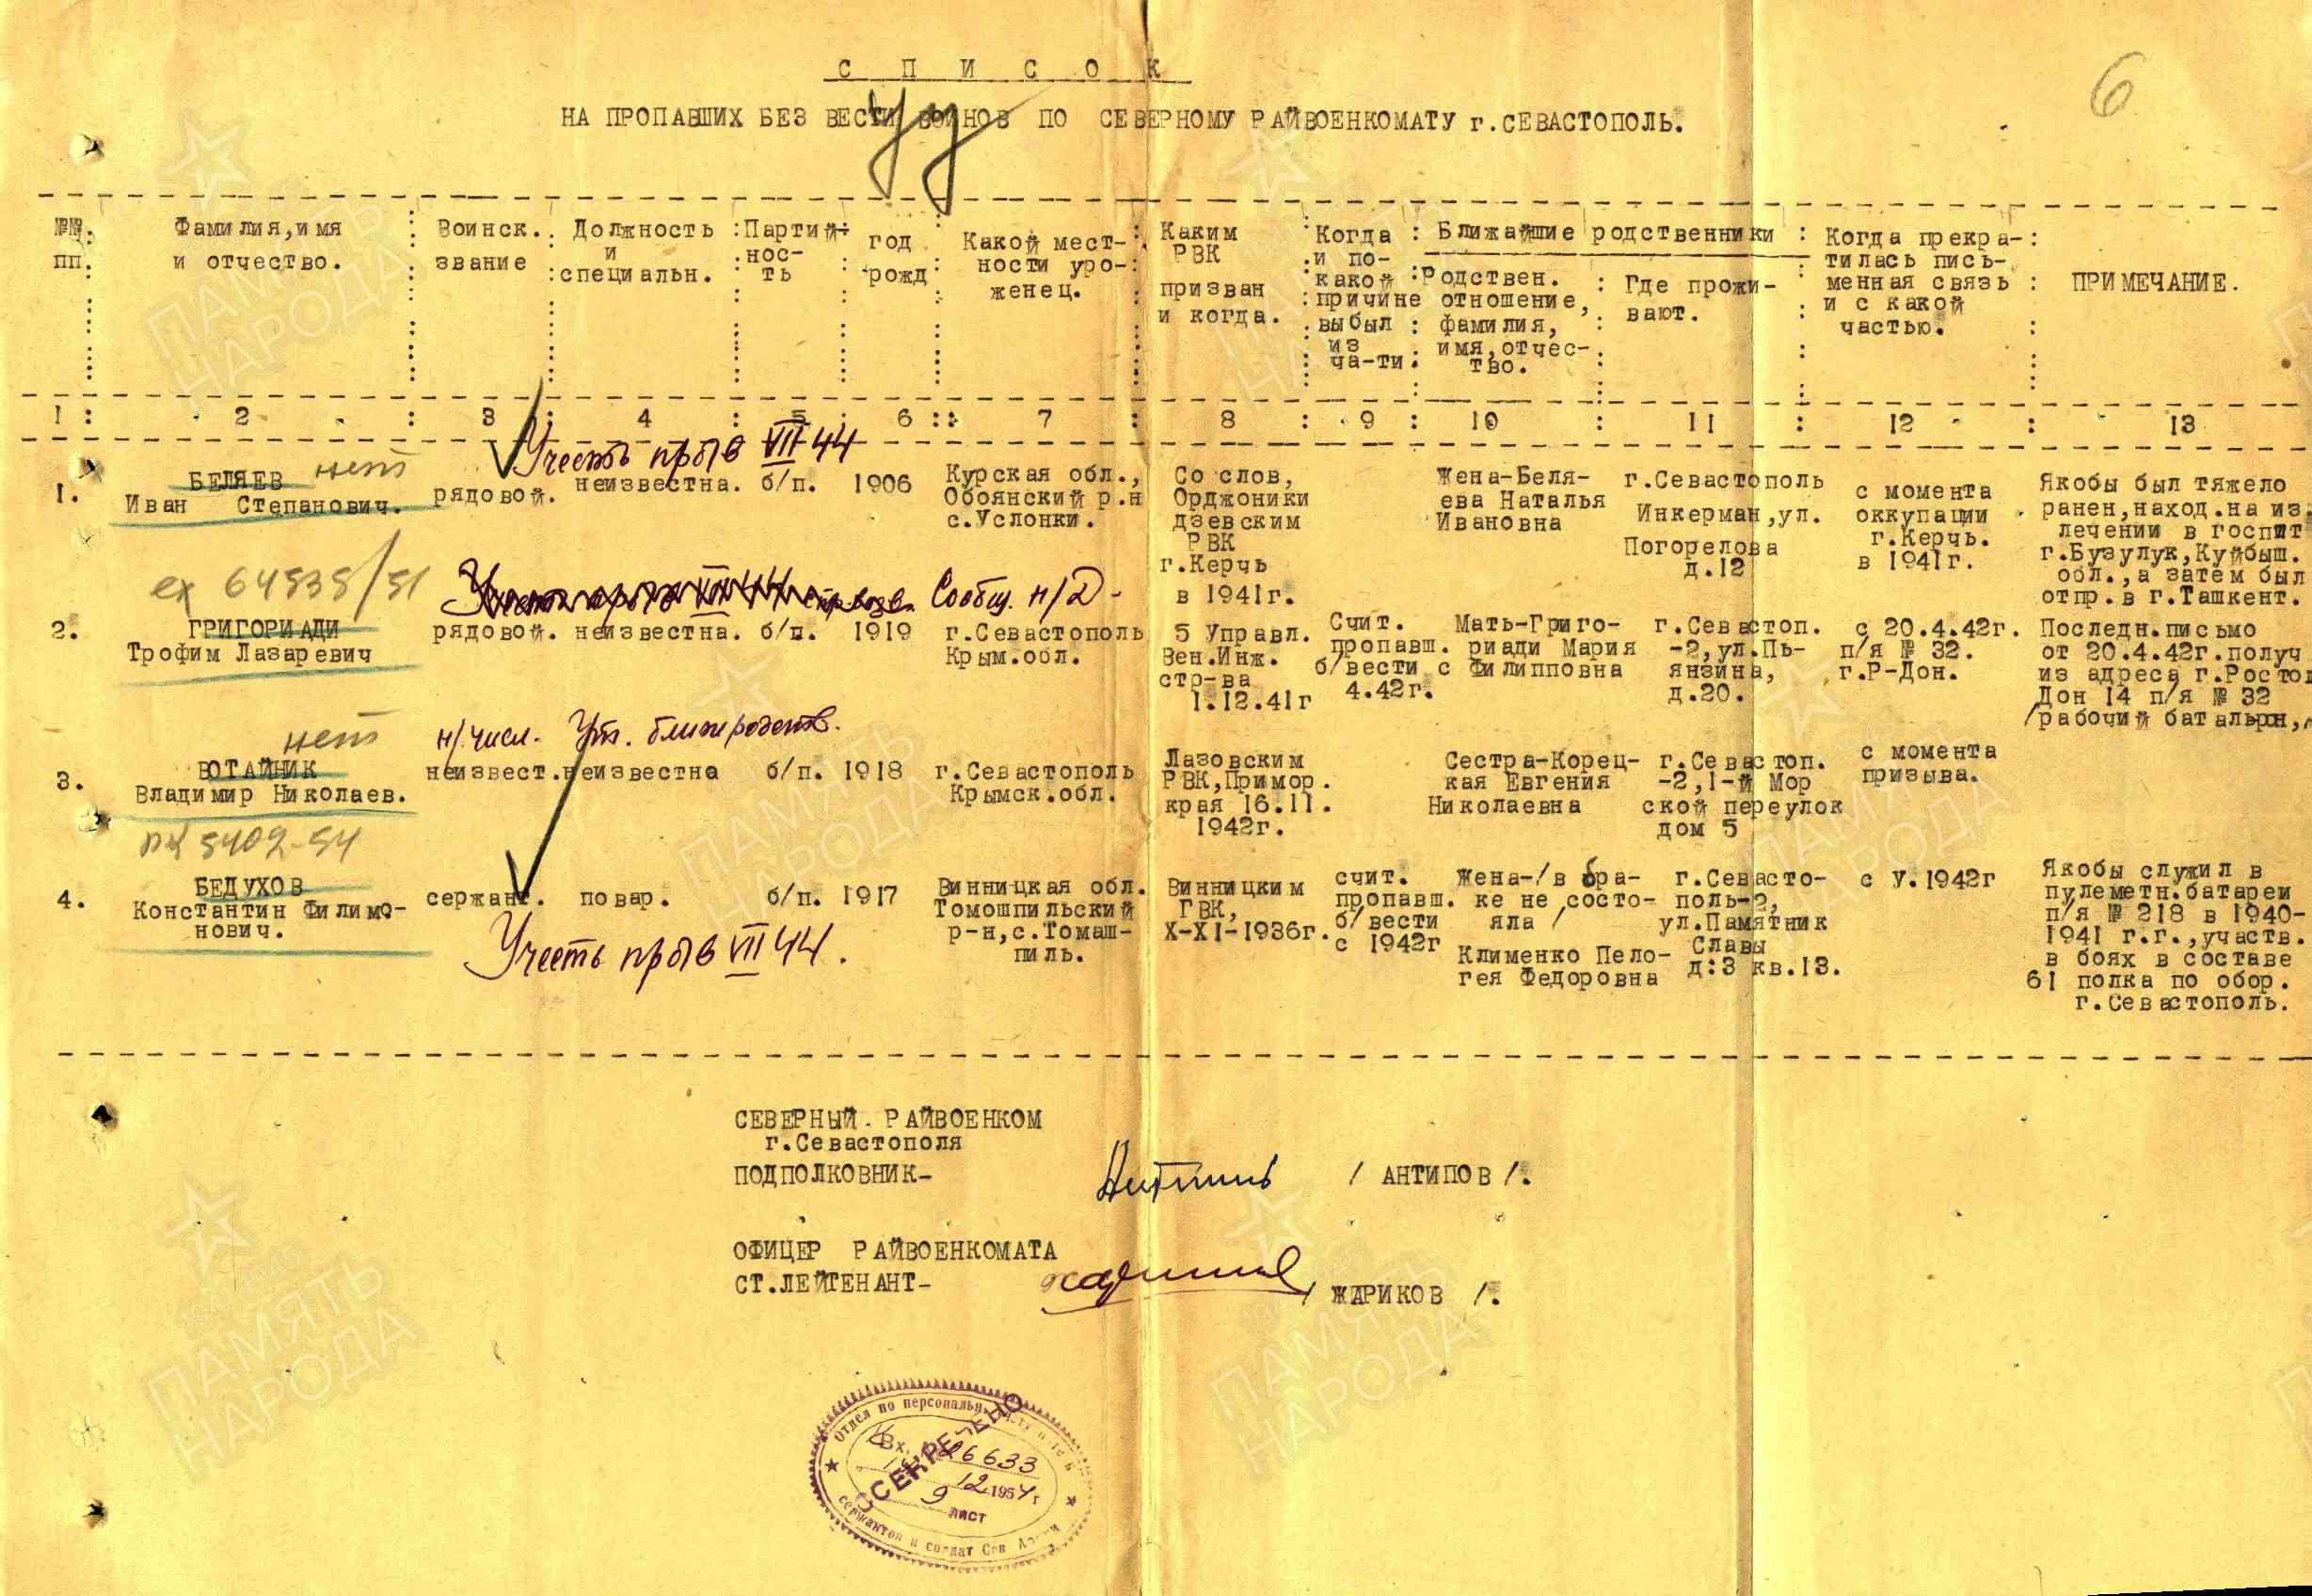 С П И С О К
6
НА ПРОПАВШИХ БЕЗ ВЕСТИ ВОИНОВ ПО СЕВЕРНОМУ РАЙВОЕНКОМАТУ г.СЕВАСТОПОЛЬ.
№№ пп.
Фамилия,имя
и отчество.
Воинск.
звание
Должность
и
специальн.
Партий-
нос-
ть
год
рожд
Какой мест-
ности уро-
женец.
Каким
РВК
призван
и когда.
Когда
и по-
какой
причине
выбыл
из
ча-ти
Ближайшие родственники
Родствен.
отношение,
фамилия,
имя,отчес-
тво.
Где прожи-
вают.
Когда прекра-
тилась пись-
менная связь
и с какой
частью.
ПРИМЕЧАНИЕ.
1 : 2 : 3 : 4 : 5 : 6 : 7 : 8 : 9 : 10 : 11 : 12 : 13
Учесть пр б/в VII 44
нет
1.
БЕЛЯЕВ
Иван Степанович.
рядовой.
неизвестна.
б/п.
1906
Курская обл.,
Обоянский р.н
с.Услонки.
Со слов,
Орджоники
дзевским
РВК
г.Керчь
в 1941г.
Жена-Беля-
ева Наталья
Ивановна
г.Севастополь
Инкерман,ул.
Погорелова
д.12
с момента
оккупации
г.Керчь.
в 1941г.
Якобы был тяжело
ранен,наход.на из.
лечении в госпит
г.Бузулук,Куйбыш.
обл.,а затем был
отпр.в г.Ташкент.
64535/51
Сообщ. н/Д-
2.
ГРИГОРИАДИ
Трофим Лазаревич
рядовой.
неизвестна.
б/п.
1919
г.Севастополь
Крым.обл.
5 Управл.
Вен.Инж.
стр-ва
1.12.41г
Счит.
пропавш.
б/вести с
4.42г.
Мать-Григо-
риади Мария
Филипповна
г.Севастоп.
-2,ул.Пь-
янзина,
д.20.
с 20.4.42г.
п/я № 32.
г.Р-Дон.
Последн.письмо
от 20.4.42г.получ
из адреса г.Ростов
Дон 14 п/я № 32
/рабочий батальон,
нет
н/числ. Ут. ближ родств.
3.
ВОТАЙНИК
Владимир Николаев.
неизвест.
неизвестна
б/п.
1918
г.Севастополь
Крымск.обл.
Лазовским
РВК,Примор.
края 16.11.
1942г.
Сестра-Корец-
кая Евгения
Николаевна
г.Севастоп.
-2,1-й Мор
ской переулок
дом 5
с момента
призыва.
5402-54
4.
БЕДУХОВ
Константин Филимо-
нович.
сержант.
повар.
б/п.
1917
Винницкая обл.
Томошпильский
р-н,с.Томаш-
пиль.
Винницким
ГВК,
X-XI-1936г.
счит.
пропавш.
б/вести
с 1942г
Жена-/в бра-
ке не состо-
яла /
Клименко Пело-
гея Федоровна
г.Севасто-
поль-2,
ул.Памятник
Славы
д:3 кв.13.
с У.1942г
Якобы служил в
пулеметн.батареи
п/я № 218 в 1940-
1941 г.г.,участв.
в боях в составе
61 полка по обор.
г.Севастополь.
Учесть пр б/в VII 44.
СЕВЕРНЫЙ РАЙВОЕНКОМ
г.Севастополя
ПОДПОЛКОВНИК-
/ АНТИПОВ /.
ОФИЦЕР РАЙВОЕНКОМАТА
СТ.ЛЕЙТЕНАНТ-
/ ЖАРИКОВ /.
Отдел по персональн.
Вх. 26633
12 1954 г
9 лист
сержантов и солдат Сов
РАССЕКРЕЧЕНО
ПАМЯТЬ
НАРОДА